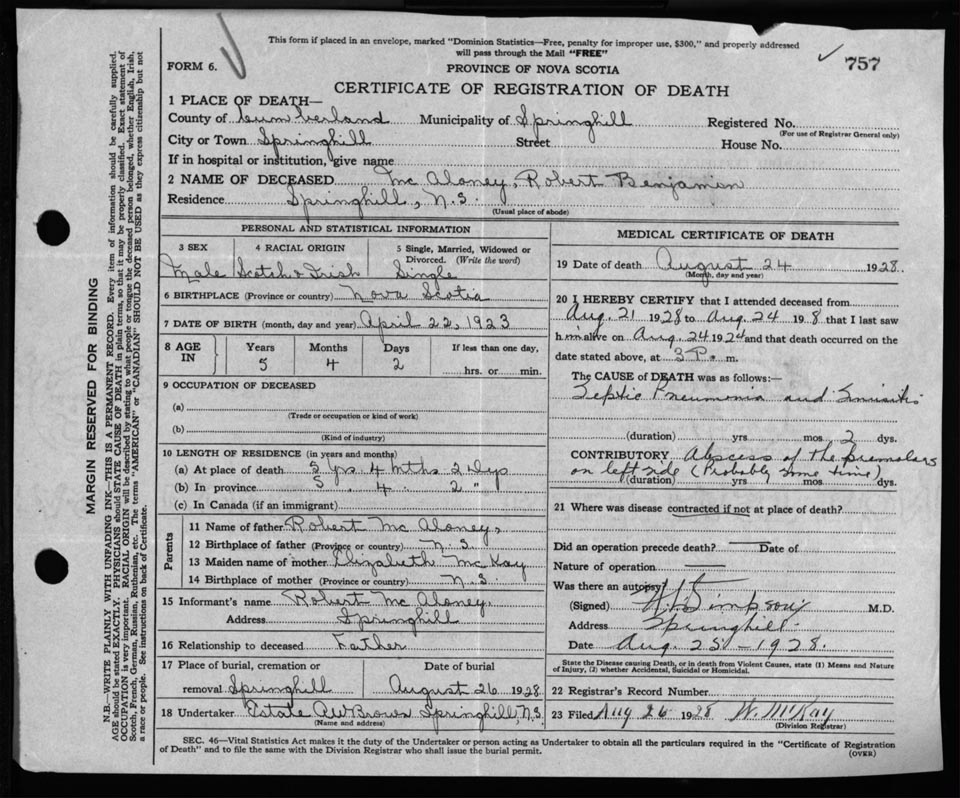 This form if placed in an envelope, marked "Dominion Statistics—Free, penalty for improper use, $300," and properly addressed
will pass through the Mail "FREE"
FORM 6.
PROVINCE OF NOVA SCOTIA
757
CERTIFICATE OF REGISTRATION OF DEATH
1 PLACE OF DEATH—
County of Cumberland Municipality of Springhill Registered No.
(For use of Registrar General only)
City or Town Springhill Street House No.
If in hospital or institution, give name
2 NAME OF DECEASED Mc Aloney, Robert Benjamin
Residence Springhill, N.S.
(Usual place of abode)
PERSONAL AND STATISTICAL INFORMATION
3 SEX 4 RACIAL ORIGIN 5 Single, Married, Widowed or
Divorced. (Write the word)
Male Scotch & Irish Single
6 BIRTHPLACE (Province or country) Nova Scotia
7 DATE OF BIRTH (month, day and year) April 22, 1923
8 AGE IN Years Months Days If less than one day,
5 4 2 hrs. or min.
9 OCCUPATION OF DECEASED
(a)
(Trade or occupation or kind of work)
(b)
(Kind of industry)
10 LENGTH OF RESIDENCE (in years and months)
(a) At place of death 5 yrs 4 mths 2 Dys
(b) In province 5 " 4 " 2 "
(c) In Canada (if an immigrant)
Parents
11 Name of father Robert Mc Aloney,
12 Birthplace of father (Province or country) N.S.
13 Maiden name of mother Elizabeth McKay
14 Birthplace of mother (Province or country) N.S.
15 Informant's name Robert Mc Aloney,
Address Springhill
16 Relationship to deceased Father
17 Place of burial, cremation or Date of burial
removal Springhill August 26 1928
18 Undertaker Estate AW Brown Springhill, N.S.
(Name and address)
MEDICAL CERTIFICATE OF DEATH
19 Date of death August 24 1928.
(Month, day and year)
20 I HEREBY CERTIFY that I attended deceased from
Aug. 21 1928 to Aug. 24 1928 that I last saw
him alive on Aug. 24 1928 and that death occurred on the
date stated above, at 3 P. m.
The CAUSE of DEATH was as follows:—
Septic Pneumonia and Sinusitis
(duration) yrs mos 2 dys.
CONTRIBUTORY Abscess of the premolars
on left side (Probably some time)
(duration) yrs mos dys.
21 Where was disease contracted if not at place of death?
Did an operation precede death? — Date of
Nature of operation —
Was there an autopsy?
(Signed) Simpson M.D.
Address Springhill
Date Aug. 25 - 1928.
State the Disease causing Death, or in death from Violent Causes, state (1) Means and Nature
of Injury, (2) whether Accidental, Suicidal or Homicidal.
22 Registrar's Record Number
23 Filed Aug 26 1928 W. McKay
(Division Registrar)
SEC. 46—Vital Statistics Act makes it the duty of the Undertaker or person acting as Undertaker to obtain all the particulars required in the "Certificate of Registration
of Death" and to file the same with the Division Registrar who shall issue the burial permit.
(OVER)
MARGIN RESERVED FOR BINDING
N.B.—WRITE PLAINLY WITH UNFADING INK—THIS IS A PERMANENT RECORD. Every item of information should be carefully supplied.
AGE should be stated EXACTLY. PHYSICIANS should STATE CAUSE OF DEATH in plain terms, so that it may be properly classified. Exact statement of
OCCUPATION is very important. RACIAL ORIGIN will be described by stating to what people or tongue the deceased person belonged, whether English, Irish,
Scotch, French, German, Russian, Ruthenian, etc. The terms "AMERICAN" or "CANADIAN" SHOULD NOT BE USED as they express citizenship but not
a race or people. See instructions on back of Certificate.